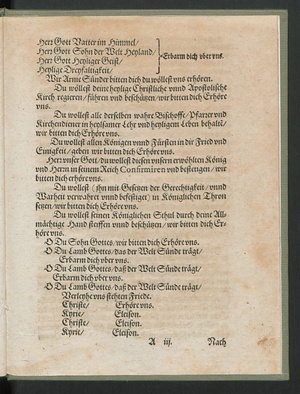 Herr Gott Vatter im Himmel/
Herr Gott Sohn der Welt Heyland/
Herr Gott Heyliger Geist/
Heylige Dreyfaltigkeit/
Erbarm dich vber vns.
Wir Arme Sünder bitten dich du wöllest vns erhören.
Du wöllest deine heylige Christliche vnnd Apostolische
Kirch regieren/ führen vnd beschützen/ wir bitten dich Erhöre
vns.
Du wollest alle derselben wahre Bischoffe/ Pfarrer vnd
Kirchendiener in heylsamer Lehr vnd heyligem Leben behalten/
wir bitten dich Erhöre vns.
Du wollest allen Königen vnnd Fürsten in dir Fried vnd
Einigkeit/ geben wir bitten dich Erhöre vns.
Herr vnser Gott/ du wollest diesen vnsern erwöhlten König
vnd Herrn in seinem Reich Confirmiren vnd bestetigen/ wir
bitten dich erhöre vns.
Du wollest (ihn mit Gesetzen der Gerechtigkeit/ vnnd
Warheit verwahret vnnd befestiget) im Königlichen Thron
setzen/ wir bitten dich Erhöre vns.
Du wollest seinen Königlichen Schul durch deine All-
mächtige Hand steiffen vnnd beschützen/ wir bitten dich Er-
höre vns.
O Du Sohn Gottes/ wir bitten dich Erhöre vns.
O Du Lamb Gottes/ das der Welt Sünde trägt/
Erbarm dich vber vns.
O Du Lamb Gottes/ daß der Welt Sünde trägt/
Erbarm dich vber vns.
O Du Lamb Gottes/ daß der Welt Sünde trägt/
Verleyhe vns stehten Friede.
Christe/ Erhöre vns.
Kyrie/ Eleison.
Christe/ Eleison.
Kyrie/ Eleison.
A iij. Nach